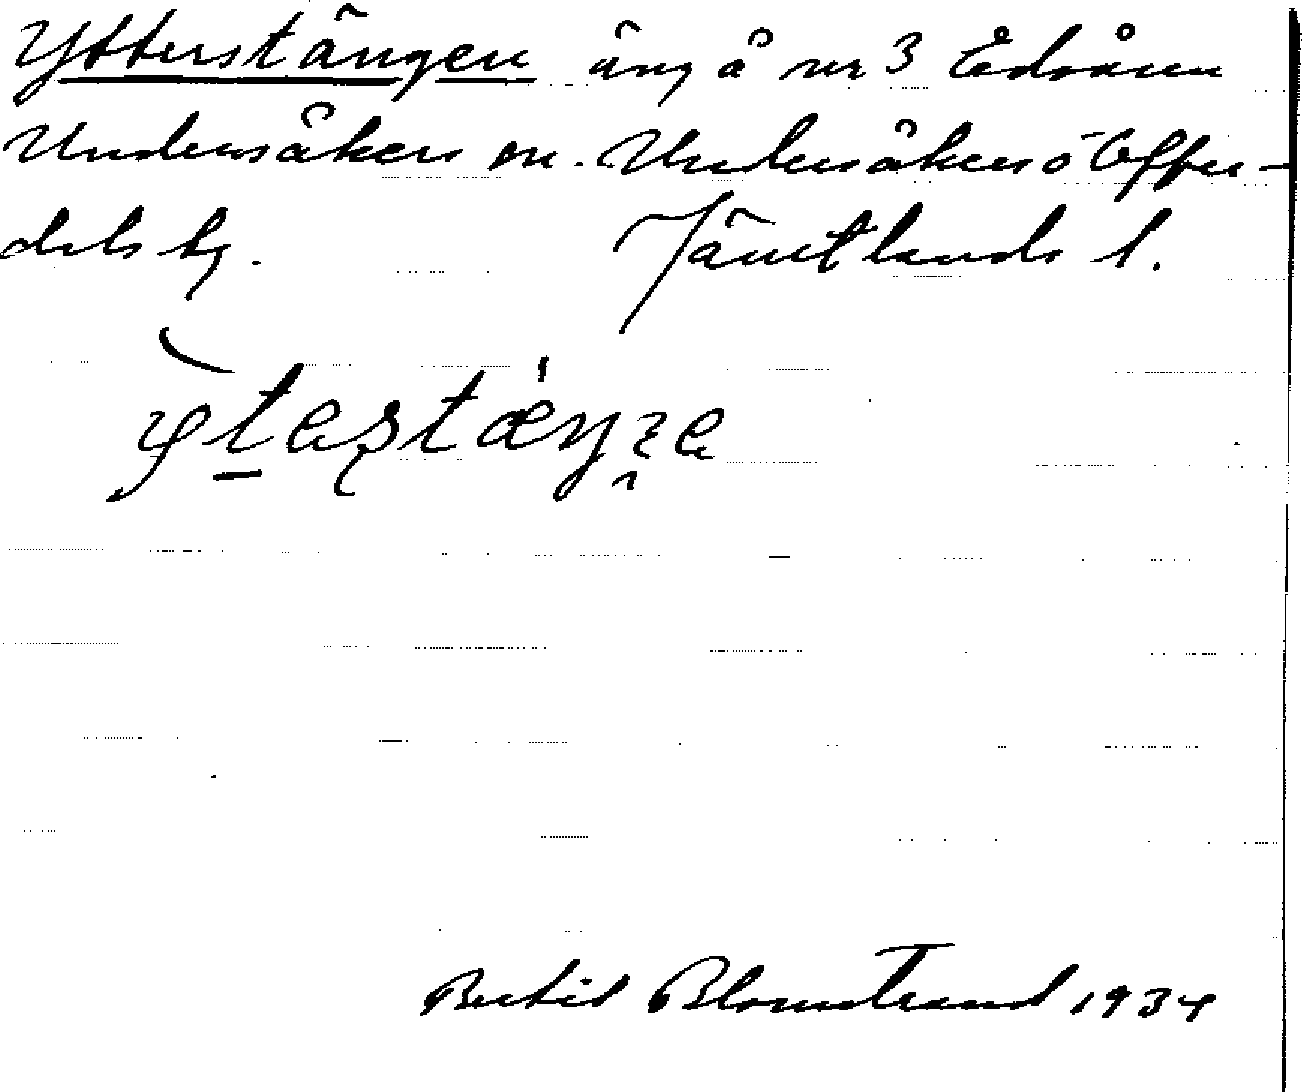 Ytterstängen äng å nr 3 Edsåsen
Undersåkers sn. Undersåkers o Offer-
dals tg. Jämtlands l.
Bertil Blomstrand 1934